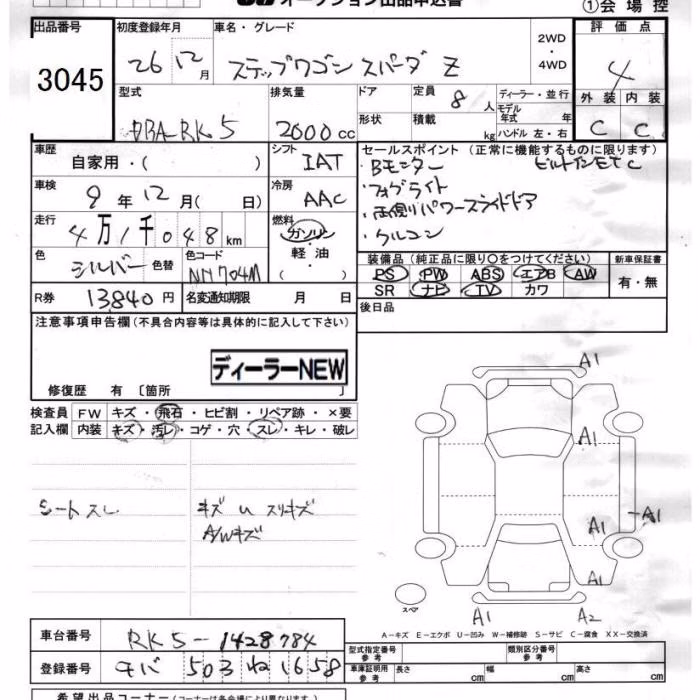 オークション出品申込書
①会場控
出品番号 初度登録年月 車名・グレード 評価点
3045 26 12月 ステップワゴン スパーダ Z 2WD・4WD 4
型式 排気量 ドア 定員 ディーラー・並行 外装 内装
DBA-RK5 2000cc 8人 モデル年式 年 C C
形状 積載 kg ハンドル 左・右
車歴 自家用・( ) シフト IAT セールスポイント(正常に機能するものに限ります)
・Bモニター ビルトインETC
車検 9年12月( 日) 冷房 AAC
・フォグライト
・両側パワースライドドア
走行 4万1千048km 燃料 ガソリン・軽油・( )
・クルコン
色 シルバー 色替 色コード NH704M 装備品(純正品に限り○をつけてください) 新車保証書
PS PW ABS エアB AW 有・無
SR ナビ TV カワ
R券 13840円 名変通知期限 月 日 後日品
注意事項申告欄(不具合内容等は具体的に記入して下さい)
ディーラーNEW
修復歴 有〔箇所 〕
検査員記入欄 FW キズ・飛石・ヒビ割・リペア跡・×要
内装 キズ・汚レ・コゲ・穴・スレ・キレ・破レ
シートスレ キズ U スリキズ
A/Wキズ
A1
A1
A1 A1
A1
A1 A2
スペア
A－キズ E－エクボ U－凹み W－補修跡 S－サビ C－腐食 XX－交換済
車台番号 RK5-1428784 型式指定番号 参考 類別区分番号 参考
登録番号 チバ 503 ね 1658 車庫証明用参考 長さ cm 幅 cm 高さ cm
希望出品コーナー